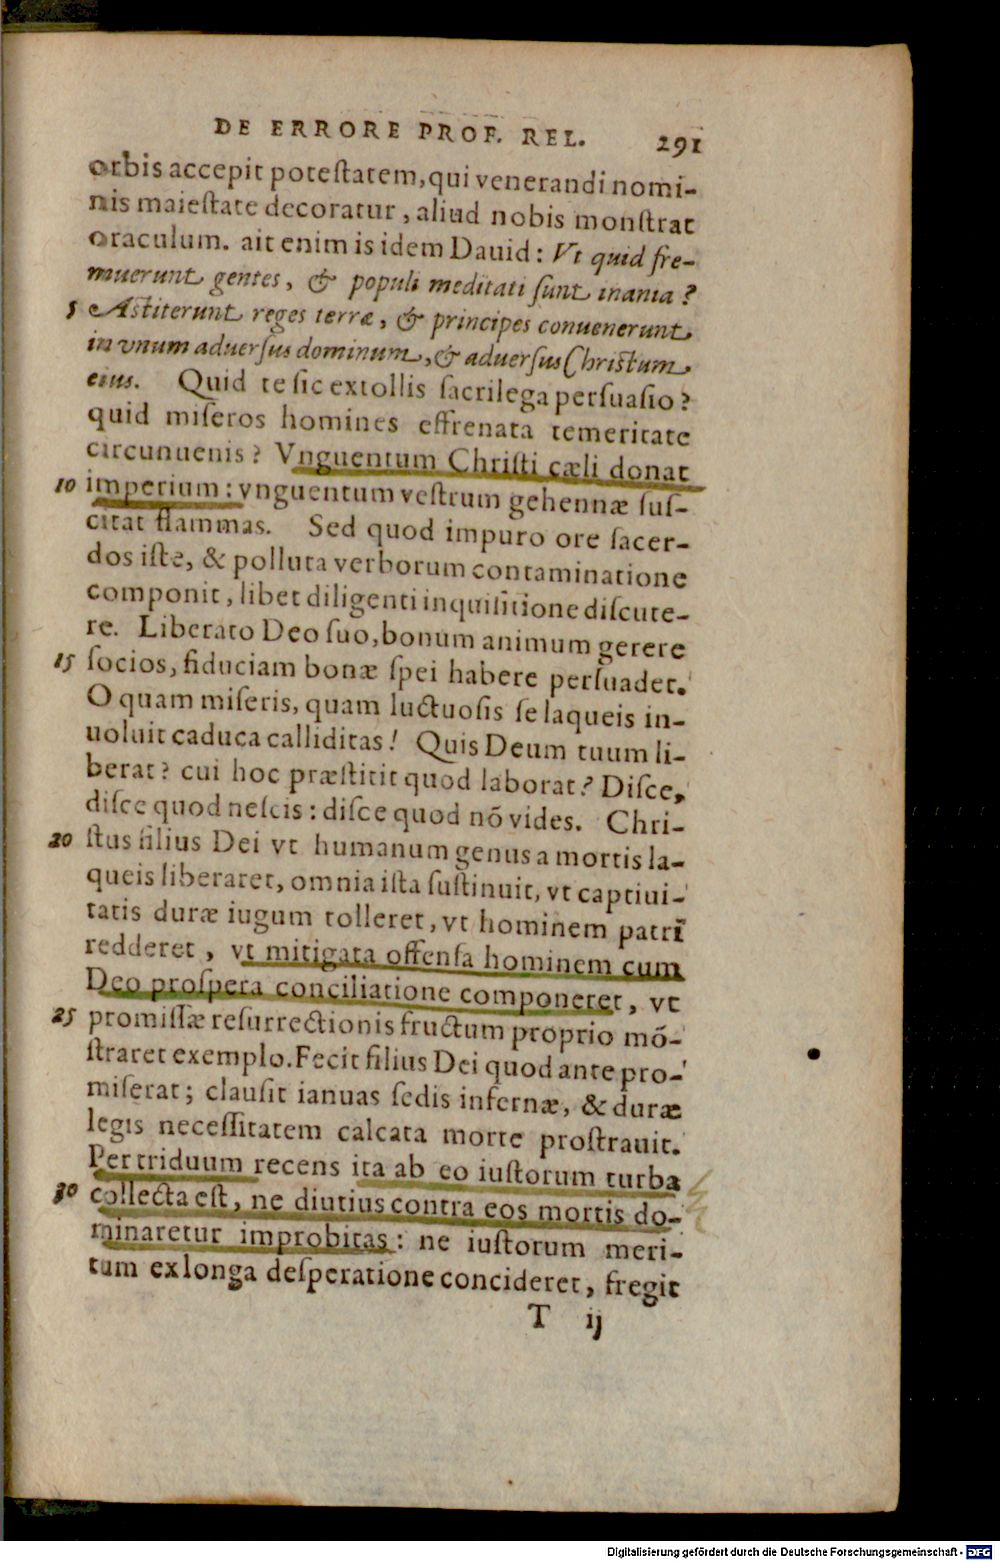 DE ERRORE PROF. REL. 291
orbis accepit poteſtatem, qui venerandi nomi-
nis maieſtate decoratur, aliud nobis monſtrat
oraculum. ait enim is idem Dauid: Vt quid fre-
muerunt gentes, & populi meditati ſunt inania?
5 Aſtiterunt reges terræ, & principes conuenerunt
in vnum aduerſus dominum, & aduerſus Chriſtum
eius. Quid te ſic extollis ſacrilega perſuaſio?
quid miſeros homines effrenata temeritate
circunuenis? Vnguentum Chriſti cæli donat
10 imperium: vnguentum veſtrum gehennæ ſuſ-
citat flammas. Sed quod impuro ore ſacer-
dos iſte, & polluta verborum contaminatione
componit, libet diligenti inquiſitione diſcute-
re. Liberato Deo ſuo, bonum animum gerere
15 ſocios, fiduciam bonæ ſpei habere perſuadet.
O quam miſeris, quam luctuoſis ſe laqueis in-
uoluit caduca calliditas! Quis Deum tuum li-
berat? cui hoc præſtitit quod laborat? Diſce,
diſce quod neſcis: diſce quod nõ vides. Chri-
20 ſtus filius Dei vt humanum genus a mortis la-
queis liberaret, omnia iſta ſuſtinuit, vt captiui-
tatis duræ iugum tolleret, vt hominem patrĩ
redderet, vt mitigata offenſa hominem cum
Deo proſpera conciliatione componeret, vt
25 promiſſæ reſurrectionis fructum proprio mõ-
ſtraret exemplo. Fecit filius Dei quod ante pro-
miſerat; clauſit ianuas ſedis infernæ, & duræ
legis neceſſitatem calcata morte proſtrauit.
Per triduum recens ita ab eo iuſtorum turba
30 collecta eſt, ne diutius contra eos mortis do-
minaretur improbitas: ne iuſtorum meri-
tum ex longa deſperatione concideret, fregit
T ij
Digitalisierung gefördert durch die Deutsche Forschungsgemeinschaft - DFG